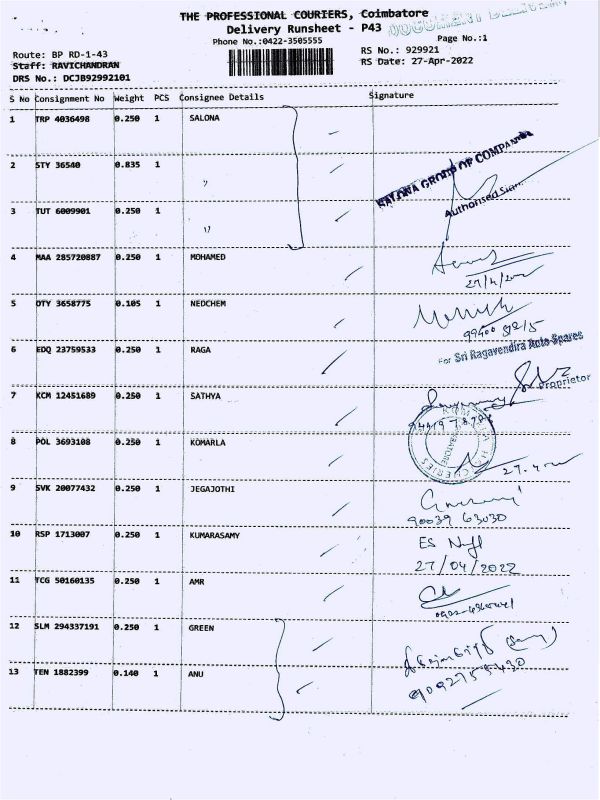 THE PROFESSIONAL COURIERS, Coimbatore
DOCUMENT DELIVERY
Delivery Runsheet - P43
Phone No.:0422-3505555
Page No.:1
Route: BP RD-1-43
RS No.: 929921
Staff: RAVICHANDRAN
RS Date: 27-Apr-2022
DRS No.: DCJB92992101
S No Consignment No Weight PCS Consignee Details Signature
1 TRP 4036498 0.250 1 SALONA
SALONA GROUP OF COMPANIES
2 STY 36540 0.835 1 "
Authorised Sign.
3 TUT 6009901 0.250 1 "
4 MAA 285720887 0.250 1 MOHAMED
5 OTY 3658775 0.105 1 NEDCHEM
For Sri Ragavendira Auto Spares
6 EDQ 23759533 0.250 1 RAGA
Proprietor
7 KCM 12451689 0.250 1 SATHYA
8 POL 3693108 0.250 1 KOMARLA
9 SVK 20077432 0.250 1 JEGAJOTHI
90039 63030
10 RSP 1713007 0.250 1 KUMARASAMY
27/04/2022
11 TCG 50160135 0.250 1 AMR
12 SLM 294337191 0.250 1 GREEN
13 TEN 1882399 0.140 1 ANU